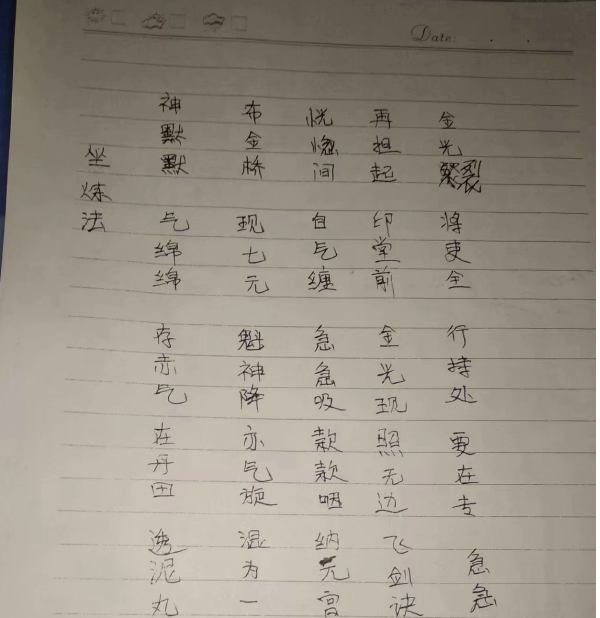 Date:
坐炼法
神默默 气绵绵 存赤气 在丹田 透泥丸
布金桥 现七元 魁神降 亦气旋 混为一
恍惚间 白气缠 急急吸 款款咽 纳元宫
再担起 印堂前 金光现 照无边 飞剑诀
金光裂 将吏全 行持处 要在专 急急